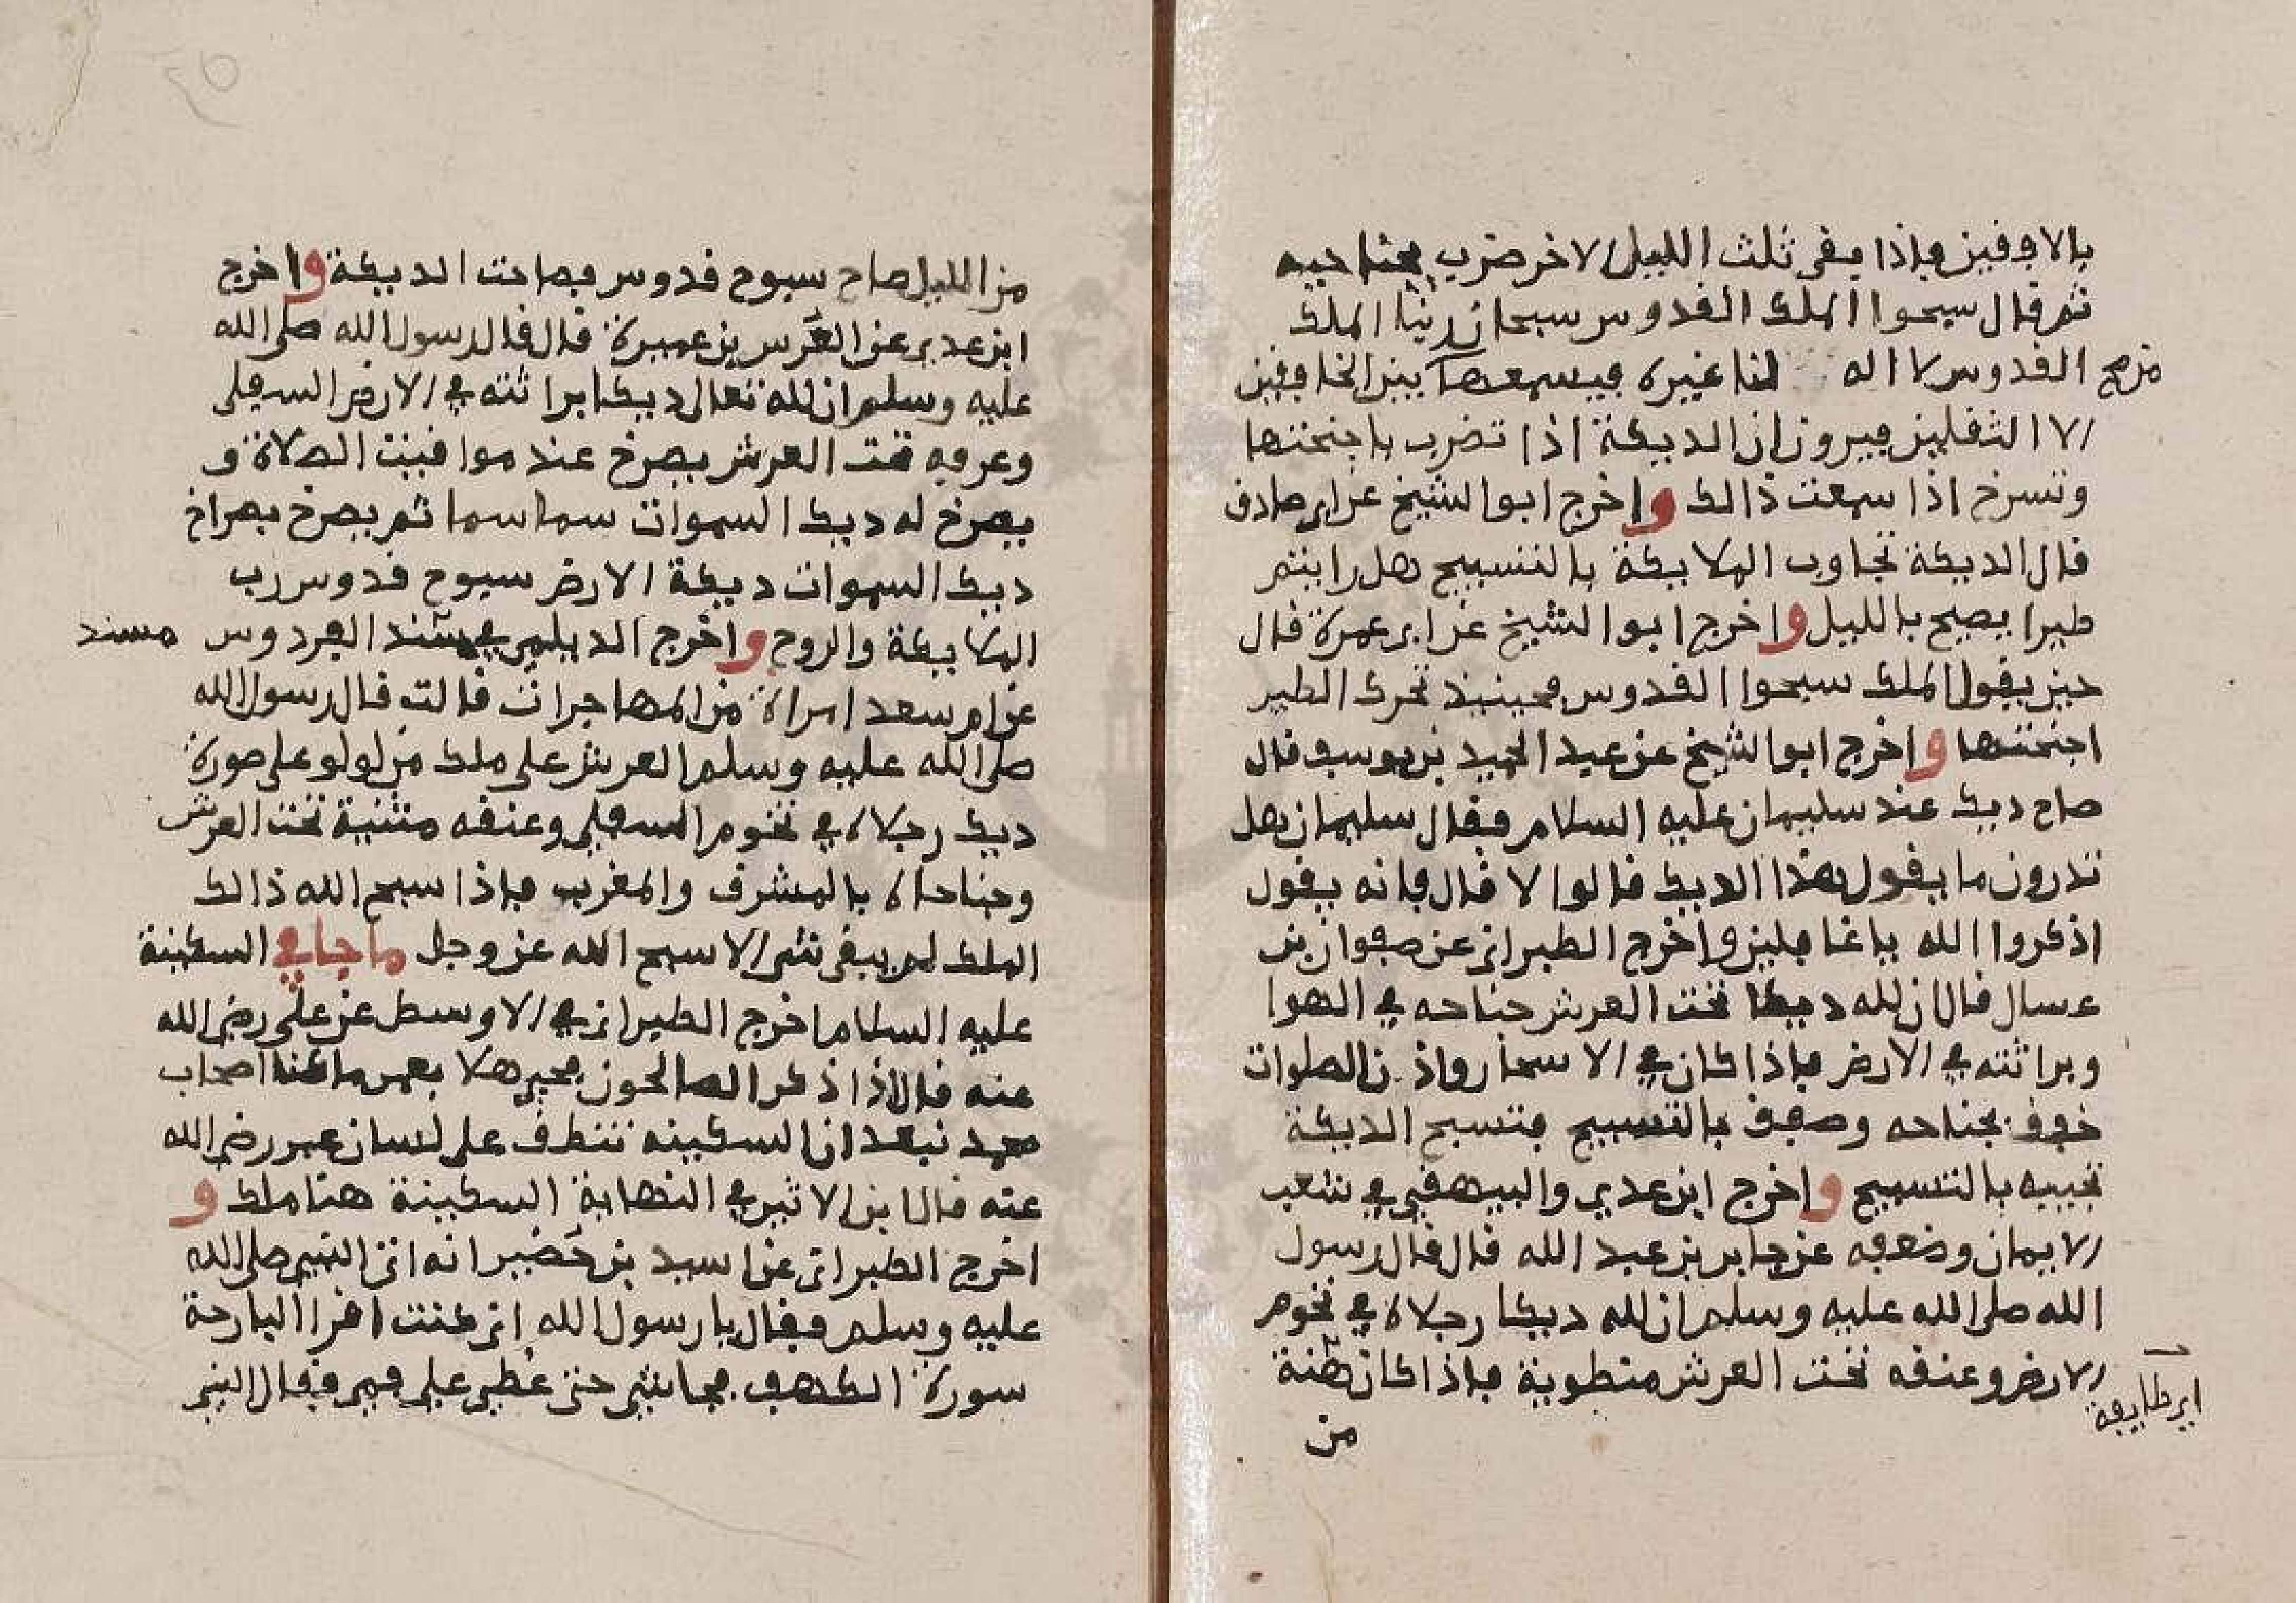 بالافقين فاذا بقى ثلث الليل الاخر ضرب بجناحيه
ثم قال سبحوا الملك القدوس سبحان ربنا الملك
القدوس لا اله لنا غيره فيسمعها من بين الخافقين
الا الثقلين فيرون ان الديكة اذا تضرب باجنحتها
وتسرخ اذا سمعت ذالك واخرج ابوا الشيخ عن ابى صادق
قال الديكة تجاوب الملايكة بالتسبيح هل رايتم
طيرا يصيح بالليل واخرج ابوا الشيخ عن ابى عمرة قال
حين يقول الملك سبحوا القدوس فحينيذ تحرك الطير
اجنحتها واخرج ابوا الشيخ عن عبد الحميد بن يوسف قال
صاح ديك عند سليمان عليه السلام فقال سليمان هل
تدرون ما يقول هذا الديك قالوا لا قال فانه يقول
اذكروا الله يا غافلين واخرج الطبرانى عن صفوان بن
عسال قال ان لله ديكا تحت العرش جناحه في الهوا
وبراثنه في الارض فاذا كان في الاسحار واذان الصلوات
خفق بجناحه وصفق بالتسبيح فتسبح الديكة
تجيبه بالتسبيح واخرج ابن عدي والبيهقي في شعب
الايمان وضعفه عن جابر بن عبد الله قال قال رسول
الله صلى الله عليه وسلم ان لله ديكا رجلاه في تخوم
الارض وعنقه تحت العرش منطوية فاذا كان هنة
اى طايفة
من
من الليل صاح سبوح قدوس فصاحت الديكة واخرج
ابن عدي عن العرس بن عميرة قال قال رسول الله صلى الله
عليه وسلم ان لله تعالى ديكا براثنه في الارض السفلى
وعرفه تحت العرش يصرخ عند مواقيت الصلاة و
يصرخ له ديك السموات سما سما ثم يصرخ بصراخ
ديك السموات ديكة الارض سبوح قدوس رب
الملايكة والروح واخرج الديلمي في مسند الفردوس
مسند
عن ام سعد امراة من المهاجرات قالت قال رسول الله
صلى الله عليه وسلم العرش على ملك من لولو على صورة
ديك رجلاه في تخوم السفلى وعنقه مثنية تحت العرش
وجناحاه بالمشرق والمغرب فاذا سبح الله ذالك
الملك لم يبق شى الا سبح الله عز وجل ما جا في السكينة
عليه السلام اخرج الطبرانى في الاوسط عن على رضي الله
عنه قال اذا ذكر الصالحون فحي هلا بعمر ما كنا اصحاب
محمد نبعد ان السكينه تنطق على لسان عمر رضي الله
عنه قال ابن الاثير في النهاية السكينة هنا ملك و
اخرج الطبرانى عن اسيد بن حضير انه اتى النبي صلى الله
عليه وسلم فقال يا رسول الله انى كنت اقرا البارحة
سورة الكهف فجا شى حتى غطى على فمي فقال النبى